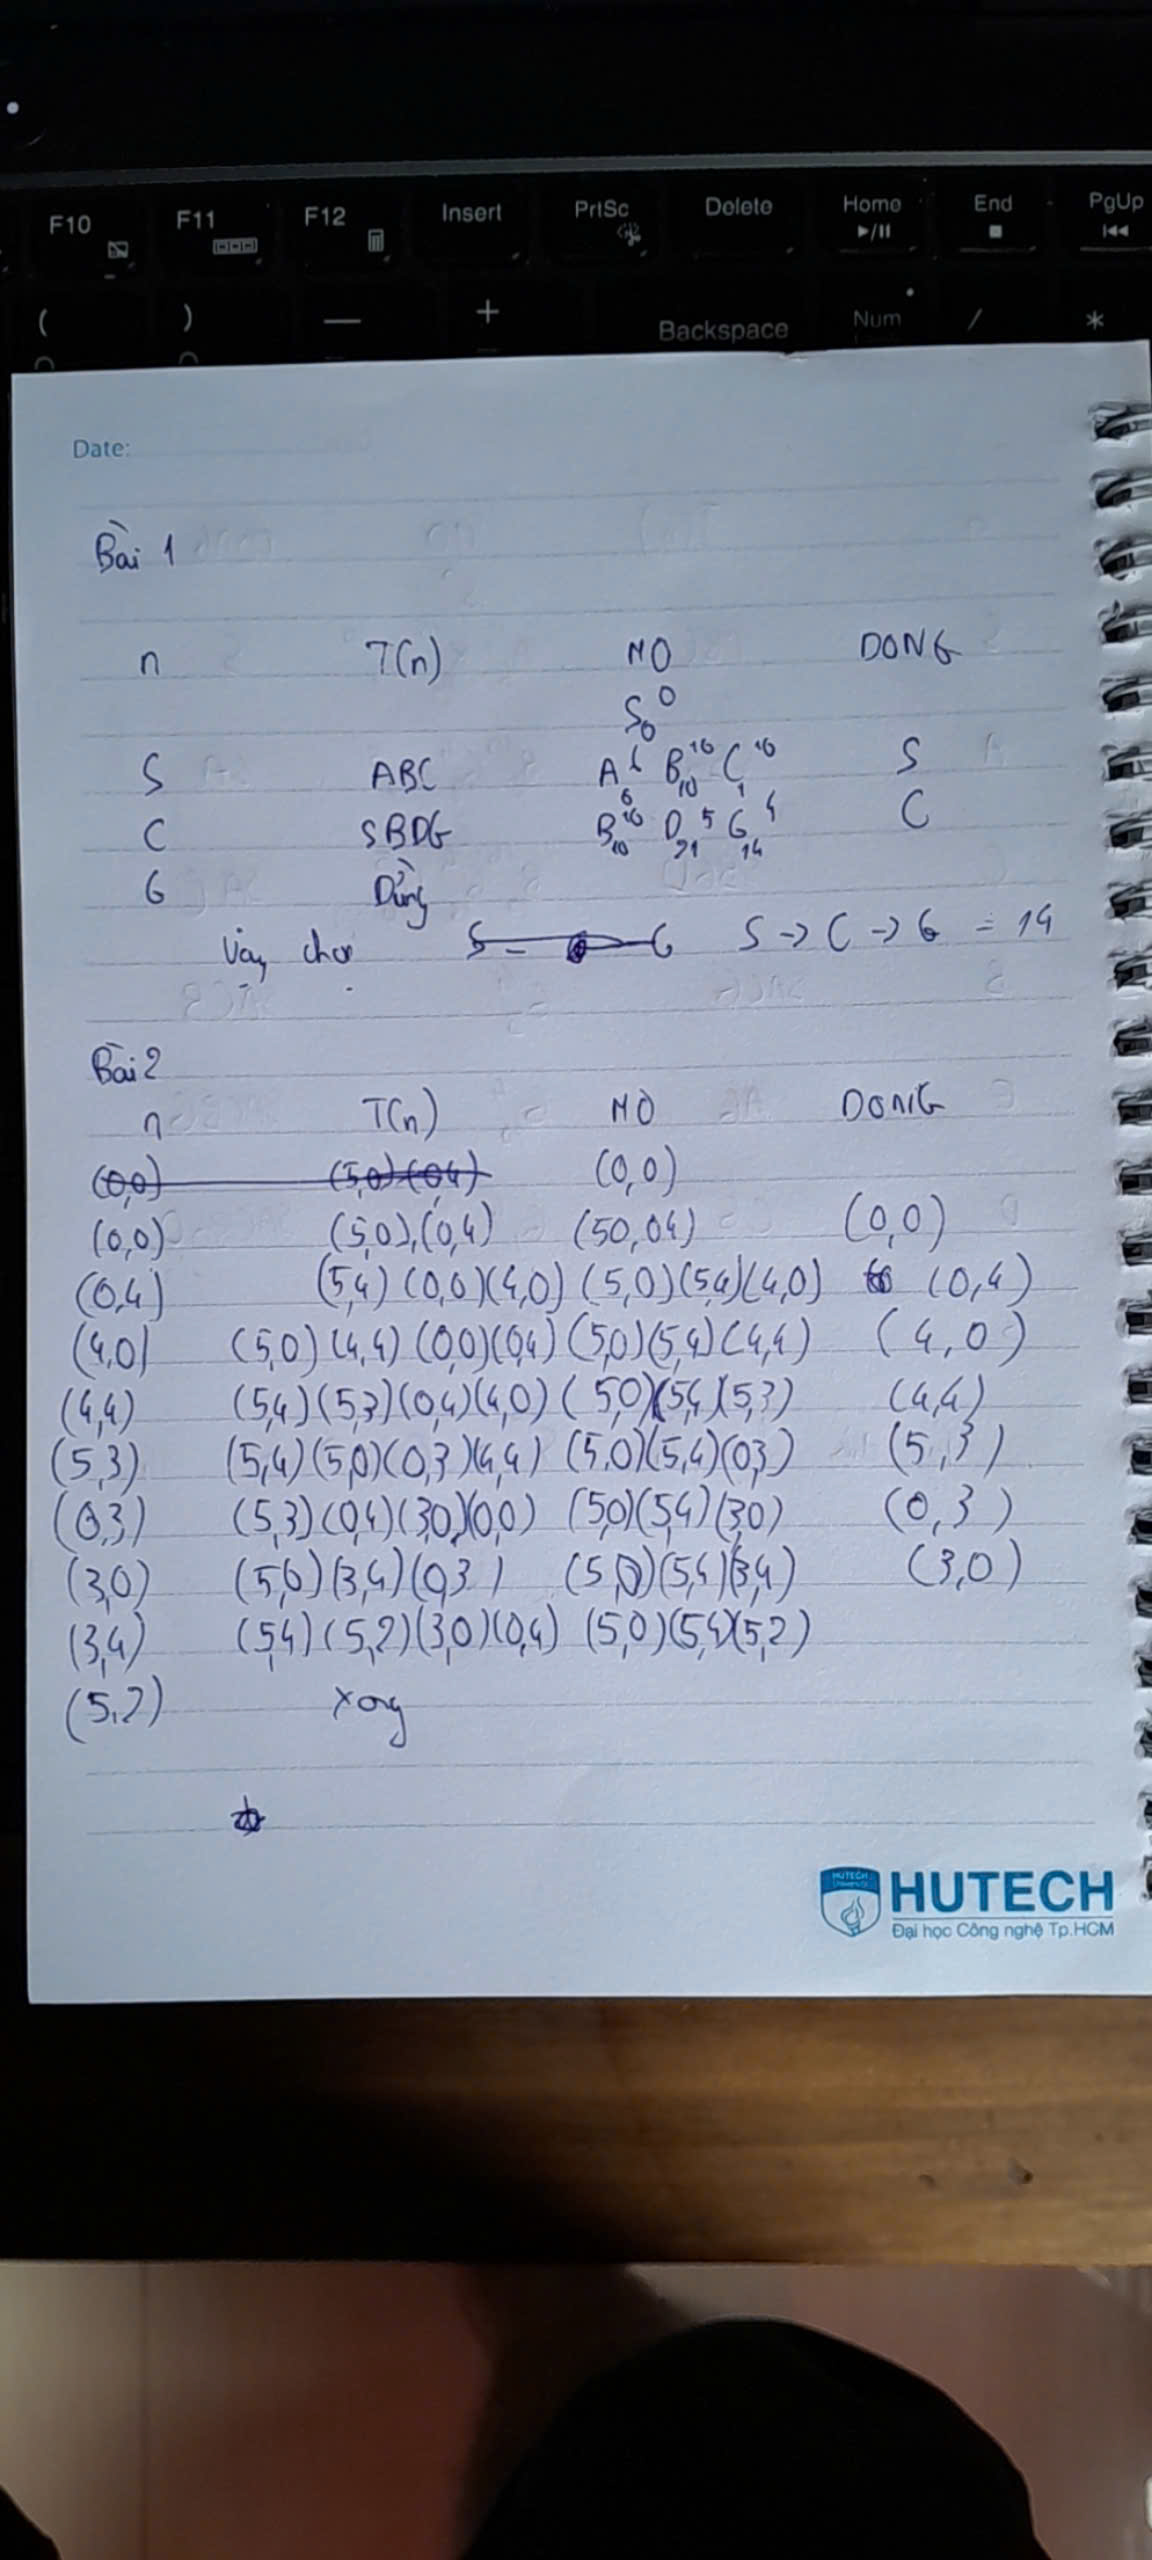 F10 F11 F12 Insert PrtSc Delete Home End PgUp
( ) — + Backspace Num / *
Date:
Bài 1
n T(n) MO DONG
S₀⁰
S ABC A₆⁶ B₁₀¹⁶ C₁¹⁶ S
C SBDG B₁₀¹⁶ D₂₁⁵ G₁₄⁴ C
G Dừng
Vậy chọn S → C → G = 14
Bài 2
n T(n) MO DONG
(0,0) (5,0)(0,4) (0,0)
(0,0) (5,0),(0,4) (50,04) (0,0)
(0,4) (5,4) (0,0)(4,0) (5,0)(5,4)(4,0) (0,4)
(4,0) (5,0) (4,4) (0,0)(0,4) (5,0)(5,4)(4,4) (4,0)
(4,4) (5,4)(5,3)(0,4)(4,0) (5,0)(5,4)(5,3) (4,4)
(5,3) (5,4)(5,0)(0,3)(4,4) (5,0)(5,4)(0,3) (5,3)
(0,3) (5,3)(0,4)(3,0)(0,0) (5,0)(5,4)(3,0) (0,3)
(3,0) (5,0)(3,4)(0,3) (5,0)(5,4)(3,4) (3,0)
(3,4) (5,4)(5,2)(3,0)(0,4) (5,0)(5,4)(5,2)
(5,2) xong
HUTECH
Đại học Công nghệ Tp.HCM